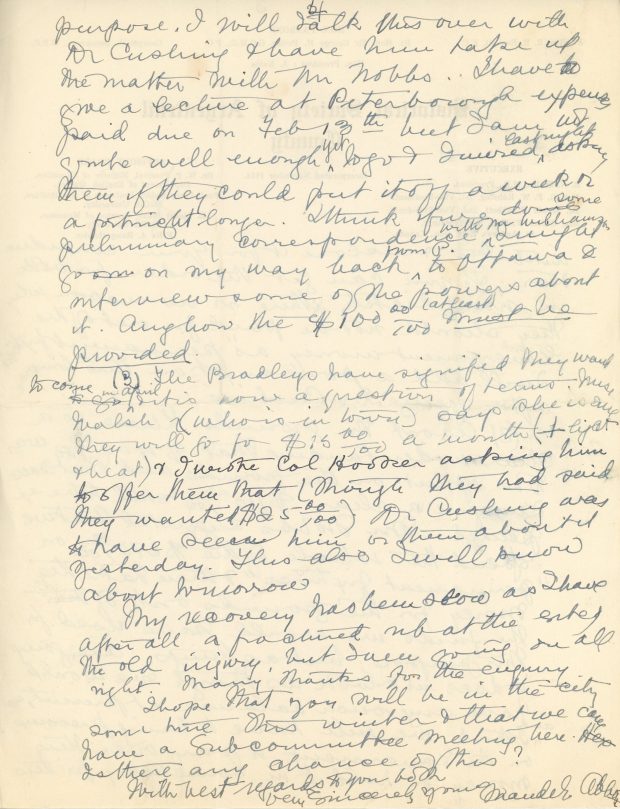 2
purpose. I will talk this over with
Dr Cushing & have him take up
the matter with Mr Nobbs.. I have to
give a lecture at Peterborough expenses
paid due on Feb 13th but I am not
quite well enough yet to go & I wired last night asking
them if they could put it off a week or
a fortnight longer. I think if we done some
preliminary correspondence with Mr Williamson I might
goon on my way back from P. to Ottawa &
interview some of the powers about
it. Anyhow the $100 00/100 (at least) must be
provided.
(3) The Bradleys have signified they want
to come in April & it is now a question of terms. Miss
Walsh (who is in town) says she is sure
they will go for $15 00/100 a month (+ light
& heat) & I wrote Col Hooker asking him
to offer them that (though they had said
they wanted $25 00/100) Dr Cushing was
to have seen him or them about it
yesterday. This also I will know
about tomorrow
My recovery has been slow as I have
after all a fractured rib at the site of
the old injury, but I am going on all
right. Many thanks for the enquiry
I hope that you will be in the city
some time this winter & that we can
have a Subcommittee meeting here.
Is there any chance of this?
With best regards to you both
very sincerely yours
Maude E Abbott